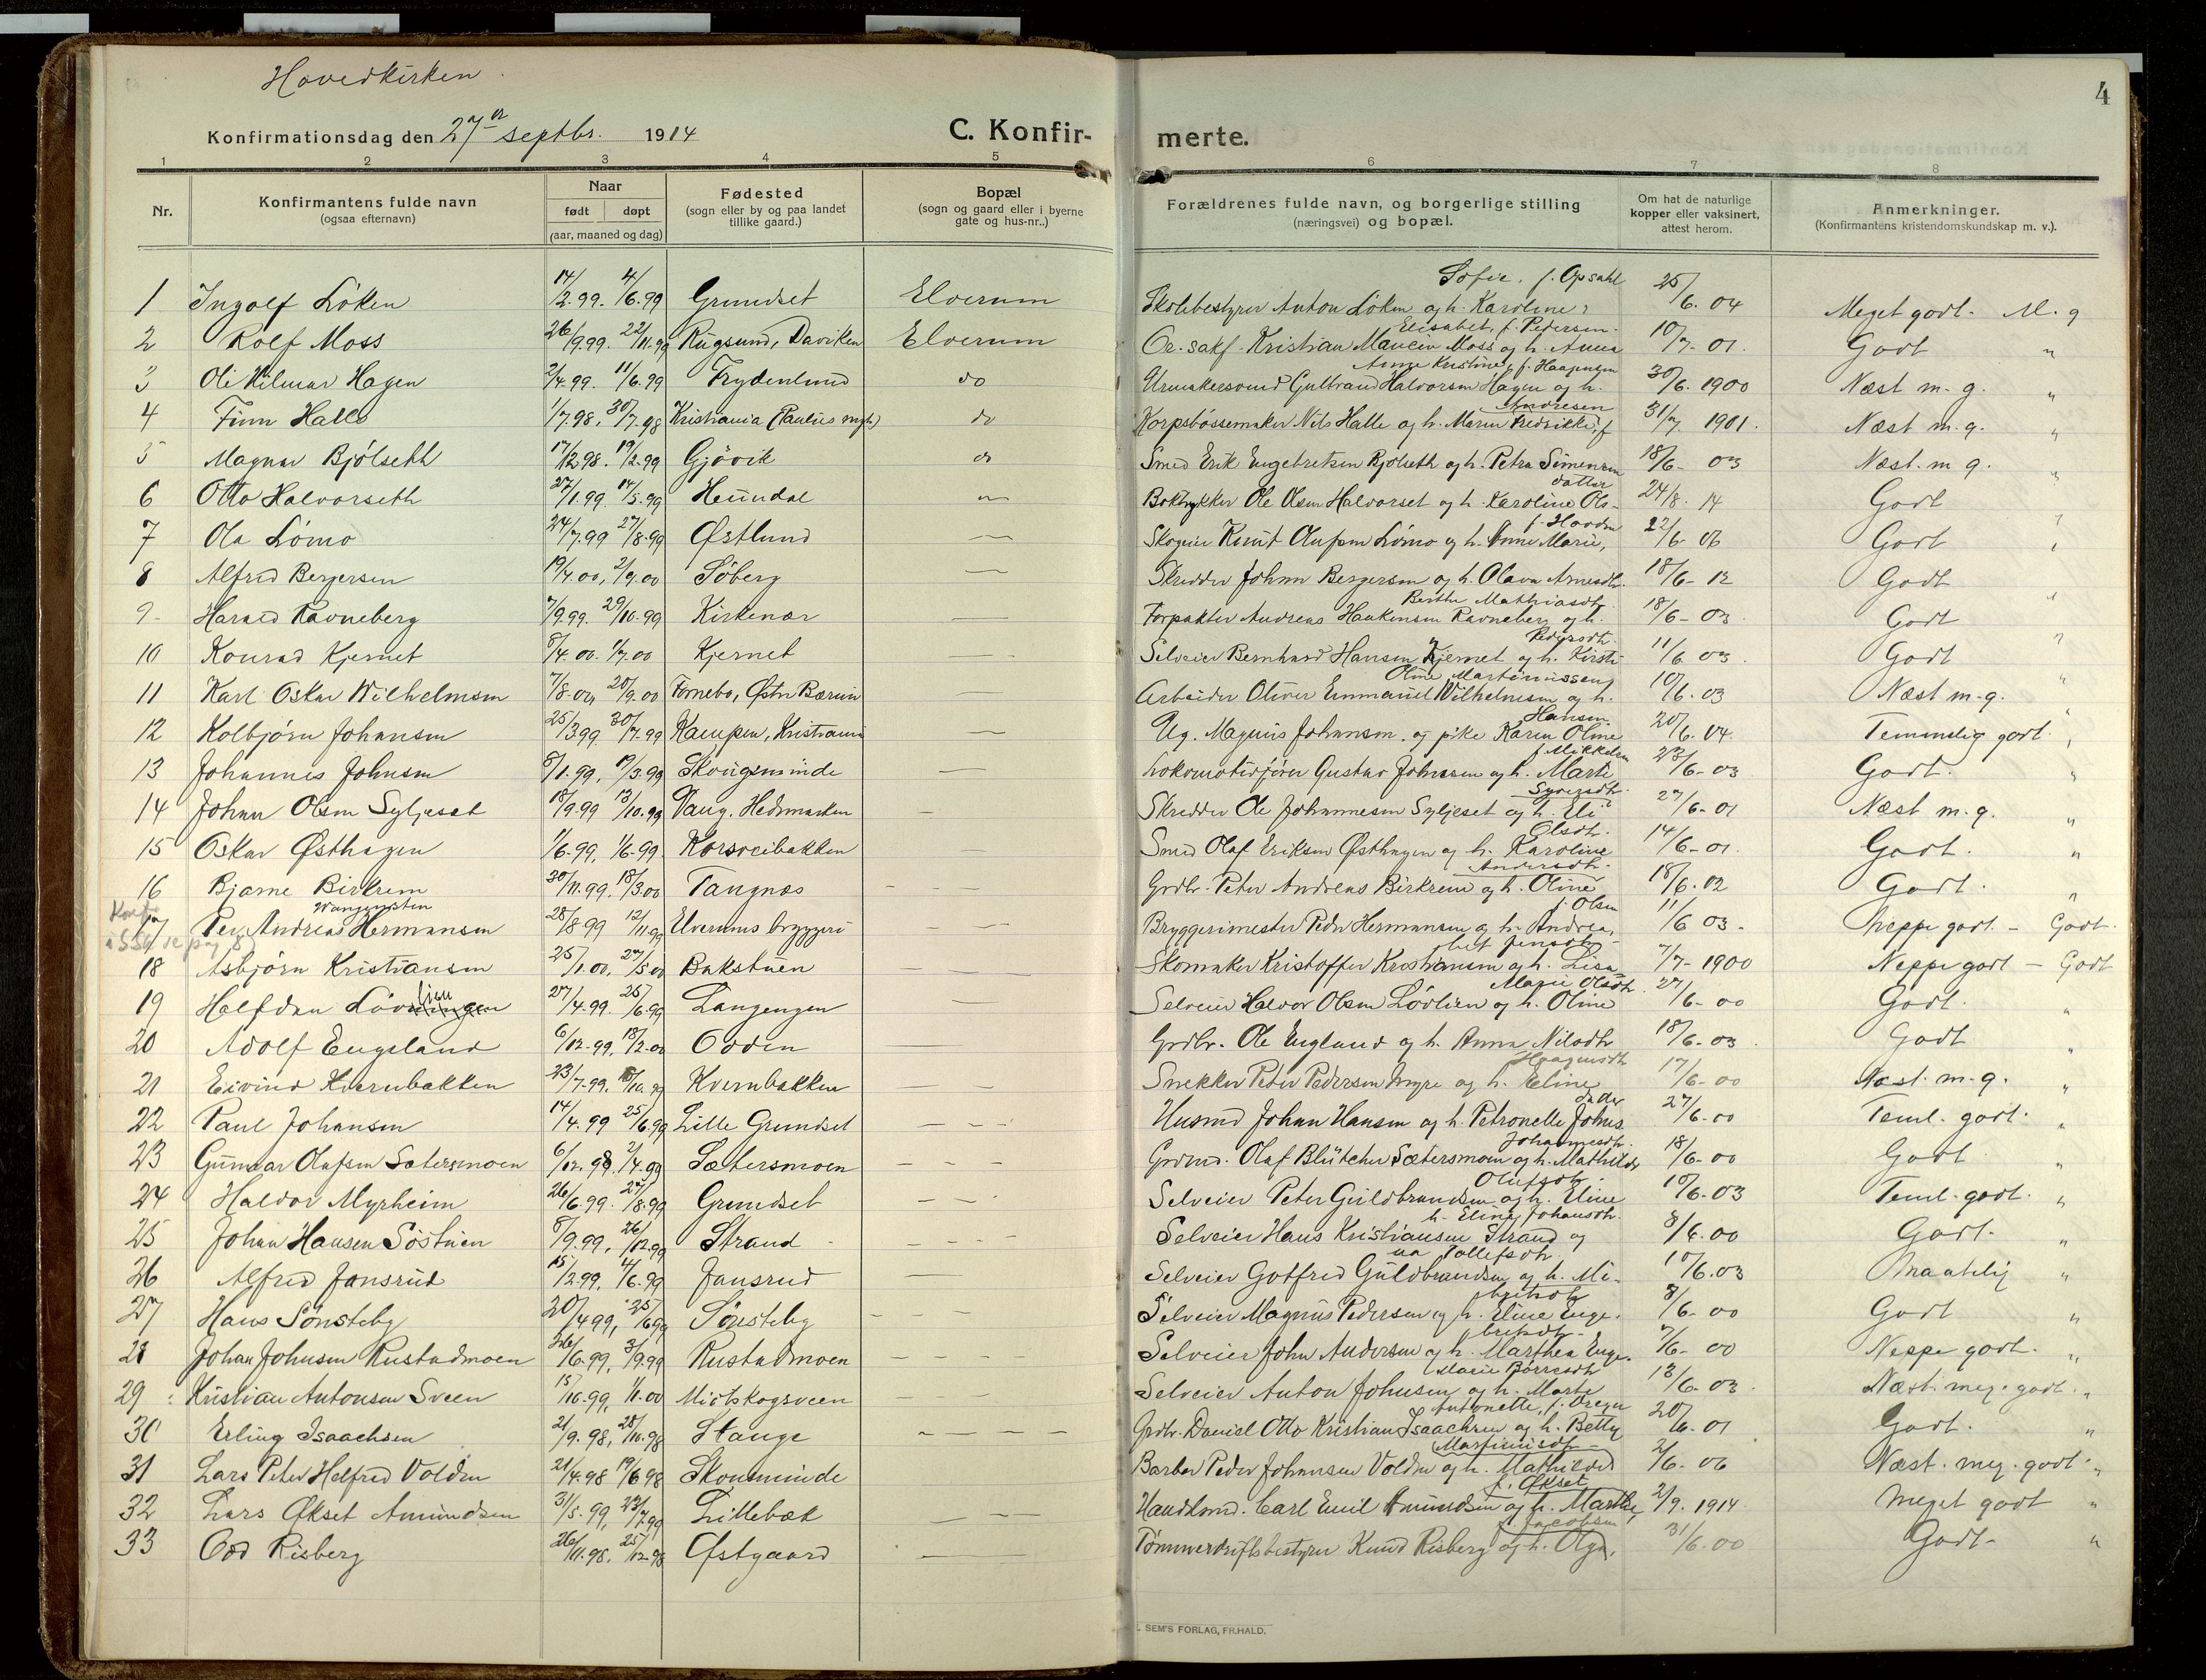 Hovedkirken
4
Konfirmationsdag den 27de septbr. 1914
C. Konfir-
merte.
1 2 3 4 5 6 7 8
Nr.
Konfirmantens fulde navn
(ogsaa efternavn)
Naar
født døpt
(aar, maaned og dag)
Fødested
(sogn eller by og paa landet
tillike gaard.)
Bopæl
(sogn og gaard eller i byerne
gate og hus-nr..)
Forældrenes fulde navn, og borgerlige stilling
(næringsvei) og bopæl.
Om hat de naturlige
kopper eller vaksinert,
attest herom.
Anmerkninger.
(Konfirmantens kristendomskundskap m. v.).
1 Ingolf Løken 14/2.99. 4/6.99 Grundset Elverum Skolebestyrer Anton Løken og h. Karoline Sofie, f. Opsahl 25/6. 04 Meget godt. M. g
2 Rolf Moss 26/9.99. 22/11.99 Rugsund, Daviken Elverum Or. sakf. Kristian Mancin Moss og h. Anna Elisabet, f. Pedersen. 10/7- 01. Godt "
3 Ole Hilmar Hagen 2/4.99. 11/6.99 Frydenlund do Urmakersvend Gulbrand Halvorsen Hagen og h. Anne Kristine, f. Haagensen 30/6. 1900 Næst m. g. "
4 Finn Halle 1/7.98, 30/7.98 Kristiania (Paulus mgh.) do Korpsbøssemaker Nils Halle og h. Maren Fredrikke, f Andresen 31/7. 1901. Næst m. g. "
5 Magnar Bjølseth 17/12.98. 19/2.99 Gjøvik do Smed Erik Engebretsen Bjølseth og h. Petra Simensen 18/6- 03 Næst. m g. "
6 Otto Halvorseth 27/1.99. 14/5.99 Heundal — Boktrykker Ole Olsen Halvorset og h. Karoline Olsdatter 24/8. 14 Godt
7 Ola Lømo 24/7.99 27/8.99 Østlund — Skogeier Knut Olufsen Lømo og h. Anne Marie, f. Hovden 22/6- 06 Godt "
8 Alfred Bergersen 19/4.00, 2/9.00 Søberg — Skredder Johan Bergersen og h. Olava Arnesdtr. 18/6- 12 Godt
9 Harald Ravneberg 7/9.99. 29/10.99 Kirkenær — Forpakter Andreas Haakensen Ravneberg og h. Berthe Mathiasdtr. 18/6- 03. Godt "
10 Konrad Kjernet 8/4.00. 1/7.00 Kjernet — Selveier Bernhard Hansen Kjernet og h. Kirsti Pedersdtr. 11/6 03. Godt "
11 Karl Oskar Wilhelmsen 7/8.00, 20/9.00 Fornebo, Østre Bærum — Arbeider Oliver Emmanuel Wilhelmsen og h. Oline Martinussen 10/6. 03 Næst m-g. "
12 Kolbjørn Johansen 25/3.99 30/7.99 Kampen, Kristiania — Ug. Magnus Johansen. og pike Karen Oline Hansen 20/6. 04. Temmelig godt. "
13 Johannes Johnsen 8/1.99, 19/3.99 Skougsminde — Lokomotivfører Gustav Johnsen og h. Marte f. Mikkelsen 23/6- 03 Godt. "
14 Johan Olsen Syljeset 18/9.99 13/10.99 Vang. Hedmarken — Skredder Ole Johannesen Syljeset og h. Eli Syversdtr. 27/6- 01 Næst m. g. "
15 Oskar Østhagen 1/6-99, 1/6-99. Korsveibakken — Smed Olaf Eriksen Østhagen og h. Karoline Olsdtr. 14/6- 01. Godt. "
16 Bjarne Birkrem 30/11.99. 18/3.00 Tangnæs - - - Grdbr. Peter Andreas Birkrem og h. Oline Andersdtr. 18/6. 02 Godt. "
17 Per Andreas Hermansen 28/8 99 12/11.99 Elverums bryggeri — Bryggerimester Peder Hermansen og h. Andrea, f. Olsen 11/6 03. Neppe godt - Godt.
18 Asbjørn Kristiansen 25/1.00. 27/5.00 Bakstuen — Skomaker Kristoffer Kristiansen og h. Lisabet Jensdtr. 7/7- 1900 Neppe godt - Godt
19 Halfdan Løvlien 27/4.99. 25/6.99 Langengen — Selveier Halvor Olsen Løvlien og h. Oline Marie Olsdtr. 27/6- 00 Godt. "
20 Adolf Engeland 6/12-99, 18/2-00 Odden — Grdbr. Ole England og h. Anna Nilsdtr 18/6- 03. Godt "
21 Eivind Kvernbakken 23/7.99. 15/10.99 Kvernbakken — Snekker Peter Pedersen Myre og h. Eline Haagensdtr 17/6- 00 Næst. m-g. "
22 Paul Johansen 14/4.99 25/6.99 Lille Grundset — Husmd Johan Hansen og h. Petronelle Johnsdatter 27/6-00 Teml. godt. "
23 Gunnar Olafsen Sætersmoen 6/12.98. 2/4.99 Sætersmoen — Grdmd. Olaf Blütcher Sætersmoen og h. Mathilde Johannesdtr. 18/6- 00 Godt "
24 Haldor Myrheim 26/6.99. 27/8.99 Grundset — Selveier Peter Guldbrandsen og h. Eline Olufsdtr. 10/6-03 Teml-godt. "
25 Johan Hansen Søstuen 8/9.99, 26/12.99 Strand — Selveier Hans Kristiansen Strand og h. Eline Johansdtr. 8/6.00 Godt. "
26 Alfred Jansrud 15/2.99. 4/6.99 Jansrud — Selveier Gotfred Guldbrandsen og h. Mina Tollefsdtr. 10/6.03 Maatelig "
27 Hans Sønsteby 20/4 99, 25/6.99 Sønsteby — Selveier Magnus Pedersen og h. Eline Engebretsdtr 8/6- 00 Godt "
28 Johan Johnsen Rustadmoen 26/6.99, 3/9.99 Rustadmoen — Selveier John Andersen og h. Marthea Engebretsdtr. 7/6- 00 Neppe godt. "
29 Kristian Antonsen Sveen 15/10.99, 1/1.00 Midtskogsveen — Selveier Anton Johnsen og h. Marte Marie Børresdtr 13/6-03. Næst meg. godt. "
30 Erling Isaachsen 21/9. 98, 28/10.98 Stange — Grdbr. Daniel Otto Kristian Isaachsen og h. Betty Antonette, f. Dregn 20/6. 01 Godt. "
31 Lars Peter Halfred Volden 21/4.98 19/6 98 Skouminde — Barber Peder Johansen Volden og h. Mathilde Martinusdtr 2/6- 06 Næst. meg. godt. "
32 Lars Økset Amundsen 31/5.99, 23/7.99 Lillebæk — Handlsmd. Carl Emil Amundsen og h. Marthe, f. Økset 2/9. 1914 Meget godt "
33 Odd Risberg 26/11.98. 25/12.98 Østgaard — Tømmerdriftsbestyrer Knud Risberg og h. Olga, f. Jacobsen 31/6.00 Godt- "
SEM'S FORLAG, FR.HALD.